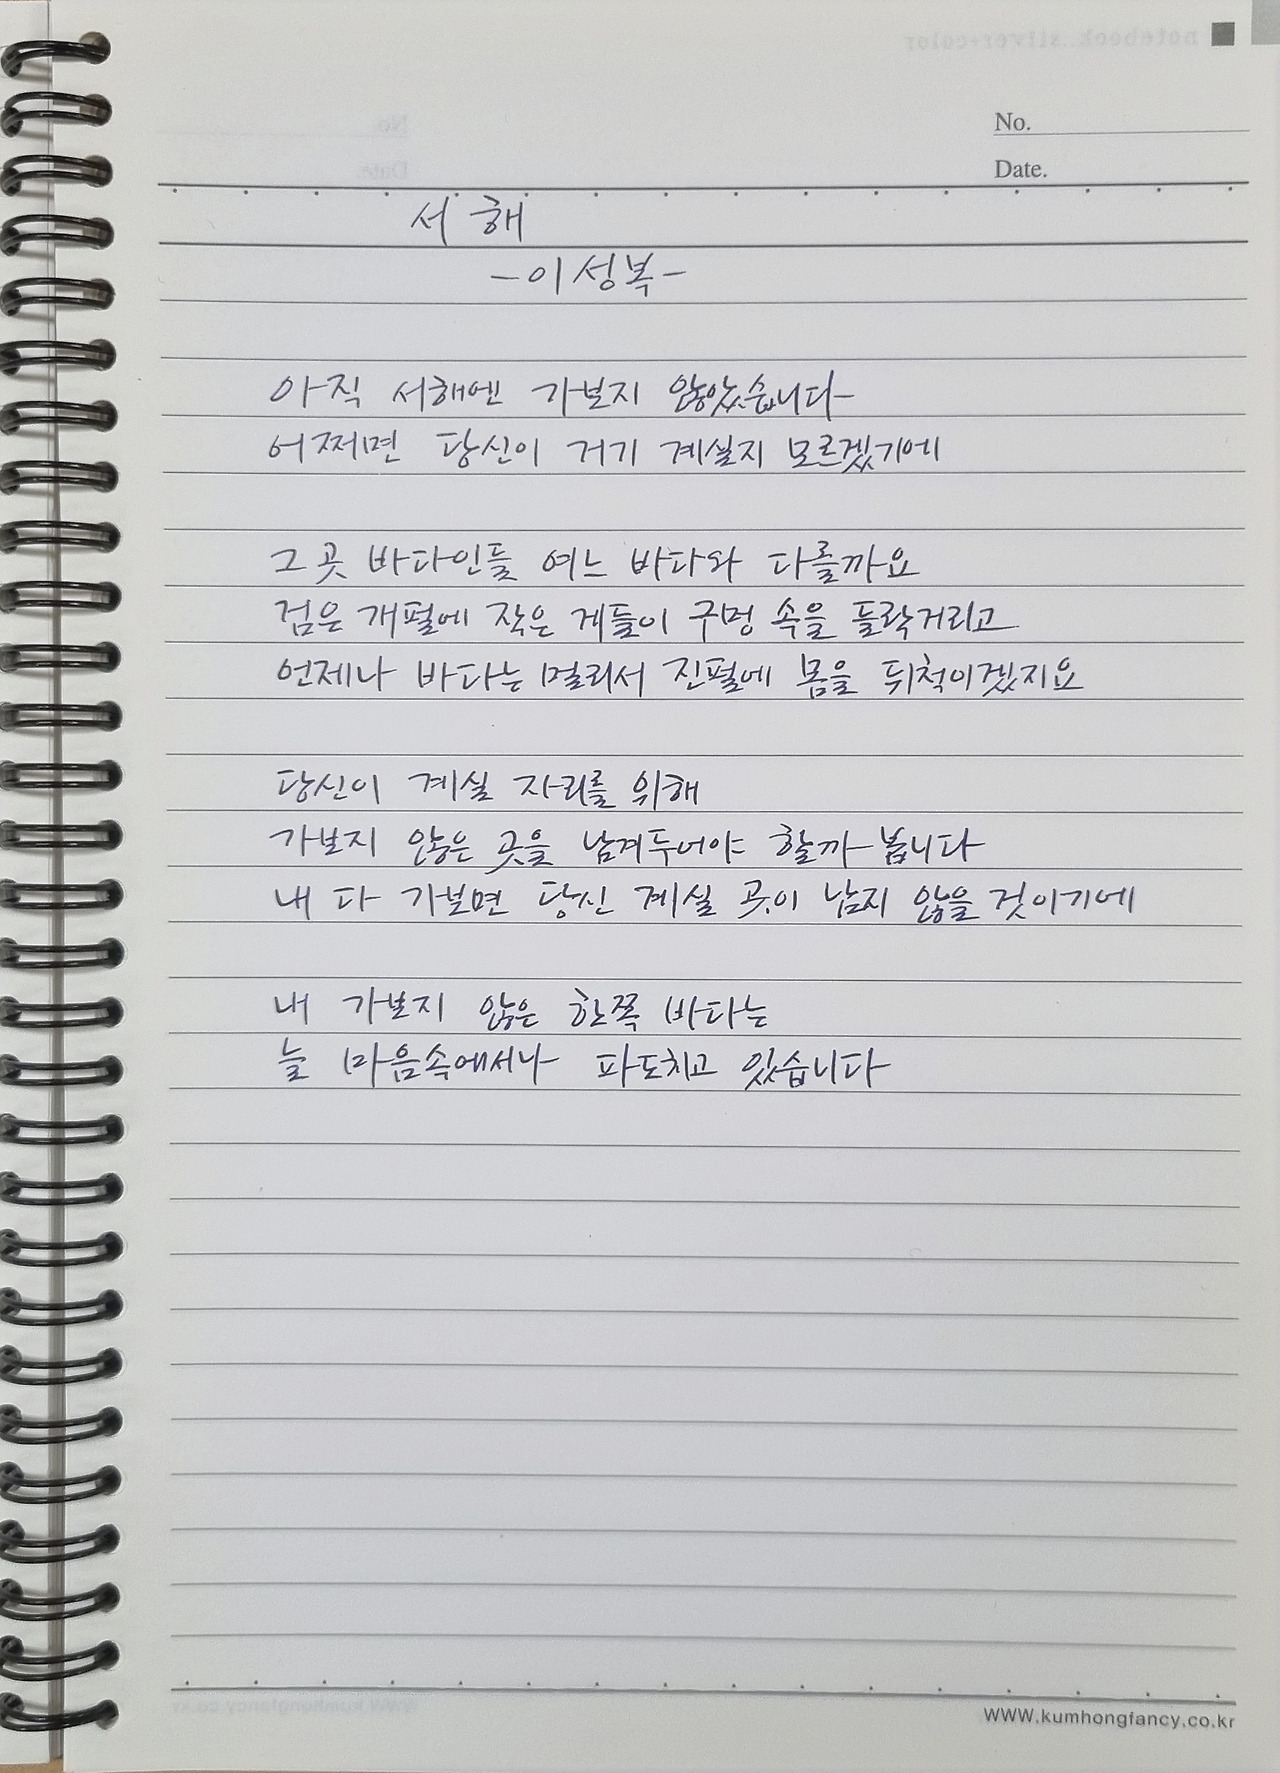 notebook silver+color
No.
Date.
서해
-이성복-
아직 서해엔 가보지 않았습니다
어쩌면 당신이 거기 계실지 모르겠기에
그곳 바다인들 여느 바다와 다를까요
검은 개펄에 작은 게들이 구멍 속을 들락거리고
언제나 바다는 멀리서 진펄에 몸을 뒤척이겠지요
당신이 계실 자리를 위해
가보지 않은 곳을 남겨두어야 할까 봅니다
내 다 가보면 당신 계실 곳이 남지 않을 것이기에
내 가보지 않은 한쪽 바다는
늘 마음속에서나 파도치고 있습니다
www.kumhongfancy.co.kr